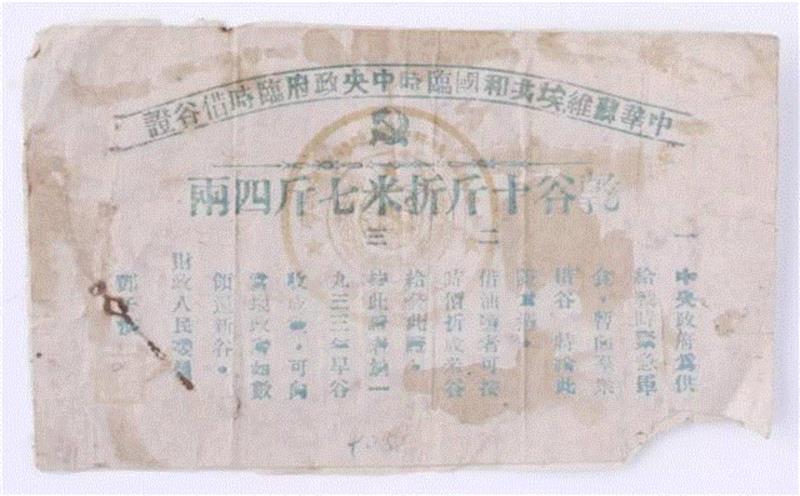 中華蘇維埃共和國臨時中央政府臨時借谷證
乾谷十斤折米七斤四兩
一
中央政府為供
給戰時緊急軍
食，暫向羣眾
借谷，特給此
二
借油鹽者可按
時價折成米谷
給發此證。
三
持此證者於一
九三三年早谷
收成後，可向
當地政府如數
領還新谷。
財政人民委員
鄧子恢